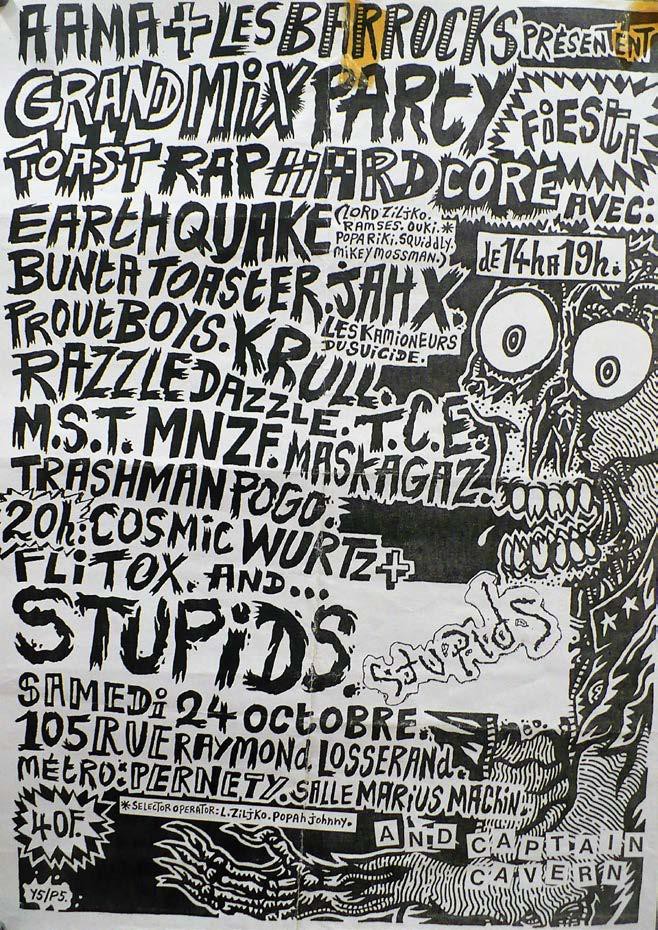 AAMA + LES BARROCKS PRÉSENTENT
GRAND MIX PARTY
FIESTA
TOAST RAP HARDCORE AVEC:
EARTHQUAKE (LORD ZILJKO.
RAMSES. OUKI.*
POPA RIKI. SQUIDDLY.
MIKEY MOSSMAN.)
de 14h À 19h.
BUNTA TOASTER. JAH X.
PROUT BOYS. KRULL.
LES KAMIONEURS
DU SUICIDE.
RAZZLE DAZZLE. T.C.E.
M.S.T. MNZF. MASKAGAZ.
TRASHMAN POGO.
20h: COSMIC WURTZ +
FLITOX. AND...
STUPiDS.
STUPIDS
SAMEDi 24 OCTOBRE.
105 RUE RAYMOND LOSSERAND.
MÉTRO: PERNETY. SALLE MARIUS MACHIN.
*SELECTOR OPERATOR: L. ZILJKO. POPAH JOHNNY.
40F.
AND CAPTAIN
CAVERN
Y5/P5.